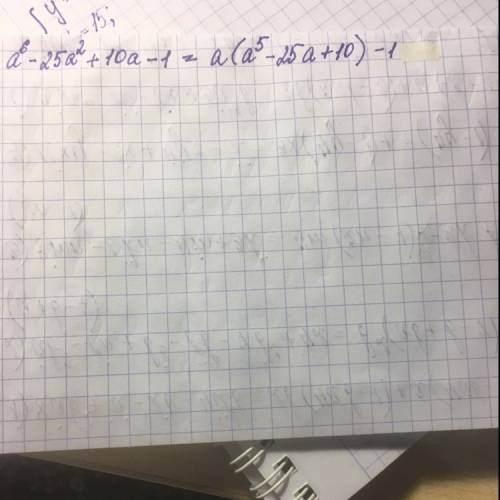 { y
= 15;
a⁶ - 25a² + 10a - 1 = a(a⁵ - 25a + 10) - 1